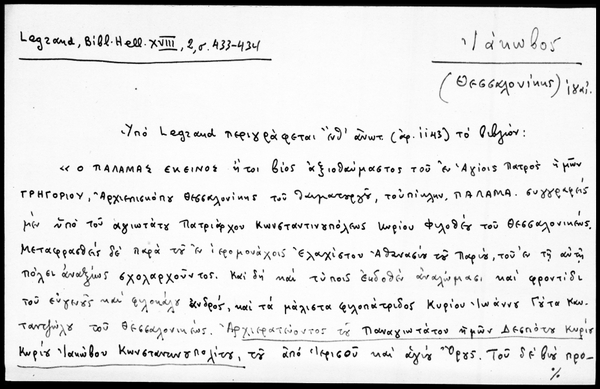 Legrand, Bibl. Hell. XVIII, 2, σ. 433-434
Ἰάκωβος
(Θεσσαλονίκης)
Ὑπὸ Legrand περιγράφεται ἔνθ' ἀνωτ (ἀρ. 1143) τὸ βιβλίον:
« Ο ΠΑΛΑΜΑΣ ΕΚΕΙΝΟΣ ἤτοι βίος ἀξιοθαύμαστος τοῦ ἐν Ἁγίοις Πατρὸς ἡμῶν
ΓΡΗΓΟΡΙΟΥ, Ἀρχιεπισκόπου Θεσσαλονίκης τοῦ Θαυματουργοῦ, τοὐπίκλην, ΠΑΛΑΜΑ. συγγραφεὶς
μὲν ὑπὸ τοῦ ἁγιωτάτου Πατριάρχου Κωνσταντινουπόλεως Κυρίου Φιλοθέου τοῦ Θεσσαλονικέως.
Μεταφρασθεὶς δὲ παρὰ τοῦ ἐν ἱερομονάχοις ἐλαχίστου Ἀθανασίου τοῦ Παρίου, τοῦ ἐν τῇ αὐτῇ
πόλει ἀναξίως σχολαρχοῦντος. Καὶ δὴ καὶ τύποις ἐκδοθεὶς ἀναλώμασι καὶ φροντίδι
τοῦ εὐγενοῦς καὶ φιλοκάλου ἀνδρός, καὶ τὰ μάλιστα φιλοπάτριδος Κυρίου Ἰωάννου Γούτα Καυ-
ταντζόγλου τοῦ Θεσσαλονικέως. Ἀρχιερατεύοντος τοῦ Παναγιωτάτου ἡμῶν Δεσπότου Κυρίου
Κυρίου Ἰακώβου Κωνσταντινουπολίτου, τοῦ ἀπὸ Ἱερισσοῦ καὶ ἁγίου Ὄρους. Τοῦ δὲ βίου προ-
%